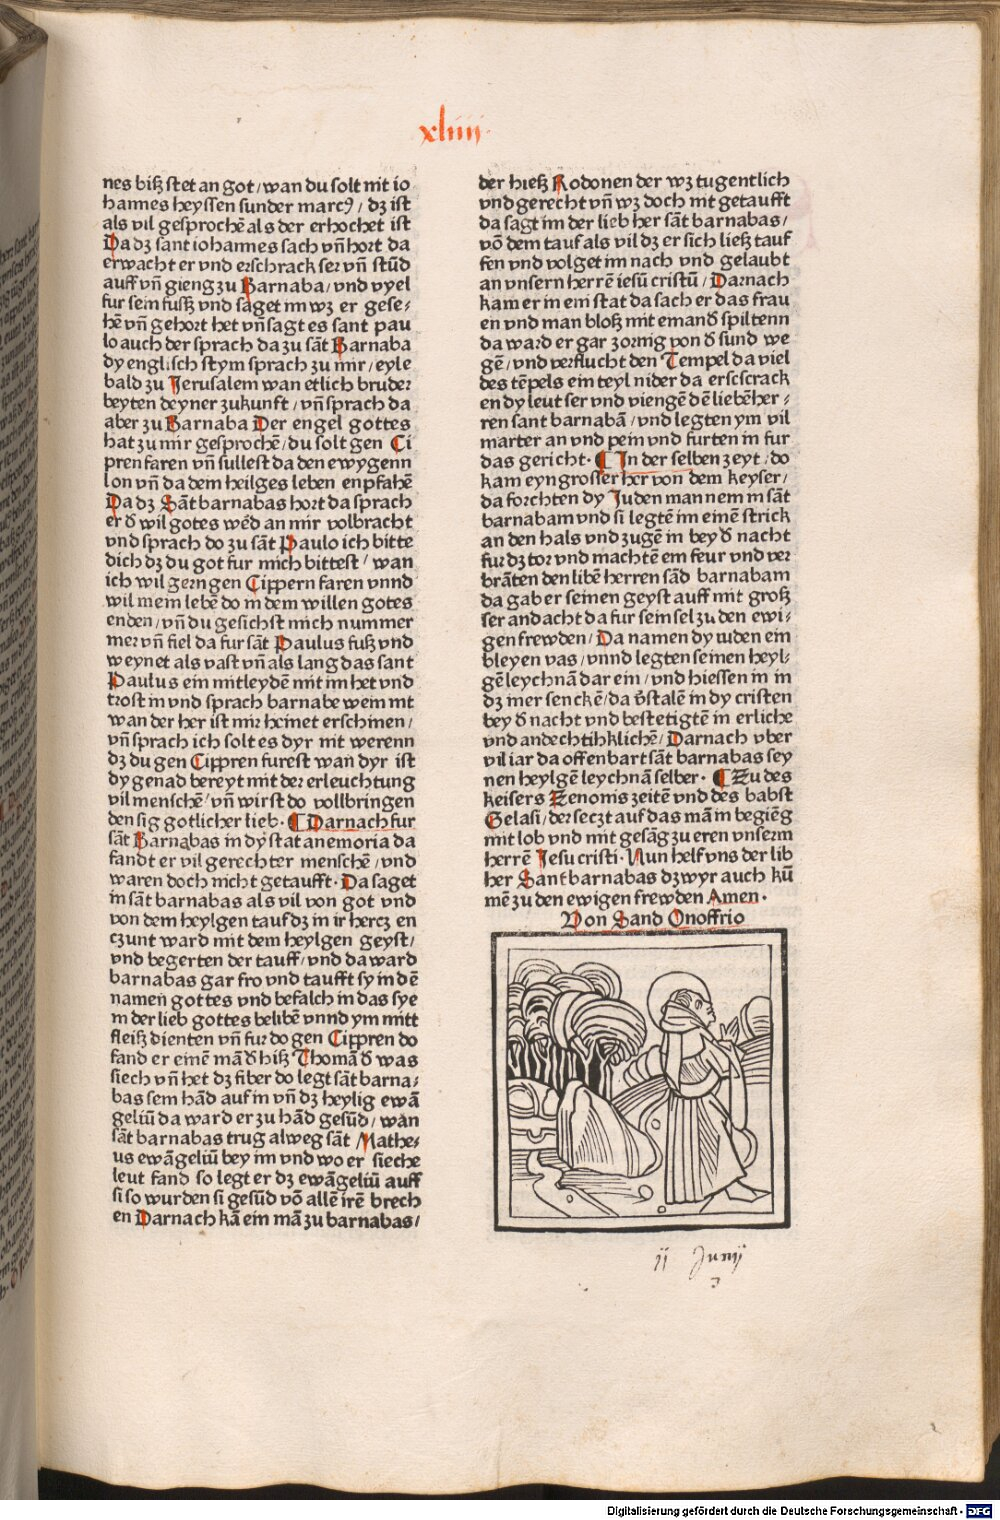 xliiij
nes bisz stet an got/wan du solt nit io
hannes heyssen sunder marcꝰ/ dz ist
als vil gesprochē als der erhochet ist
Da dz sant iohannes sach vn̄ hort da
erwacht er vnd erschrack ser vn̄ stūd
auff vn̄ gieng zu Barnaba/vnd vyel
fur sein fusz vnd saget im wz er gese⸗
hē vn̄ gehort het vn̄ sagt es sant pau
lo auch der sprach da zu sāt Barnaba
dy englisch stym sprach zu mir/eyle
bald zu Jerusalem wan etlich bruder
beyten deyner zukunft/vn̄ sprach da
aber zu Barnaba Der engel gottes
hat zu mir gesprochē/du solt gen Ci
pren faren vn̄ sullest da den ewygenn
lon vn̄ da dem heilges leben enpfahē
Da dz Sāt barnabas hort da sprach
er d̄ wil gotes wēd an mir volbracht
vnd sprach do zu sāt Paulo ich bitte
dich dz du got fur mich bittest/ wan
ich wil gern gen Cippern faren vnnd
wil mein lebē do in dem willen gotes
enden/vn̄ du gesichst mich nummer
mer vn̄ fiel da fur sāt Paulus fusz vnd
weynet als vast vn̄ als lang das sant
Paulus ein mitleydē mit im het vnd
trost in vnd sprach barnabe wein nit
wan der her ist mir heinet erschinen/
vn̄ sprach ich solt es dyr nit werenn
dz du gen Cippren furest wan dyr ist
dy genad bereyt mit der erleuchtung
vil menschē/vn̄ wirst do vollbringen
den sig gotlicher lieb. ¶ Darnach fur
sāt Barnabas in dy stat anemoria da
fandt er vil gerechter menschē/vnd
waren doch nicht getaufft. Da saget
in sāt barnabas als vil von got vnd
von dem heylgen tauf dz in ir hercz en
czunt ward mit dem heylgen geyst/
vnd begerten der tauff/vnd da ward
barnabas gar fro vnd taufft sy in dē
namen gottes vnd befalch in das sye
in der lieb gottes belibē vnnd ym mitt
fleisz dienten vn̄ fur do gen Cippren do
fand er einē mā d̄ hisz Thomā d̄ was
siech vn̄ het dz fiber do legt sāt barna⸗
bas sein hād auf in vn̄ dz heylig ewā
geliū da ward er zu hād gesūd/wan
sāt barnabas trug alweg sāt Mathe⸗
us ewāgeliū bey im vnd wo er sieche
leut fand so legt er dz ewāgeliū auff
si so wurden si gesūd vō allē irē brech
en Darnach kā ein mā zu barnabas/
der hiesz Rodonen der wz tugentlich
vnd gerecht vn̄ wz doch nit getaufft
da sagt im der lieb her sāt barnabas/
vō dem tauf als vil dz er sich liesz tauf
fen vnd volget im nach vnd gelaubt
an vnsern herrē iesū cristū/Darnach
kam er in ein stat da sach er das frau
en vnd man blosz mit emand̄ spiltenn
da ward er gar zornig von d̄ sund we
gē/vnd verflucht den Tempel da viel
des tēpels ein teyl nider da erscscrack
en dy leut ser vnd viengē dē liebē her⸗
ren sant barnabā/vnd legten ym vil
marter an vnd pein vnd furten in fur
das gericht. ¶ In der selben zeyt/do
kam eyn grosser her von dem keyser/
da forchten dy Juden man nem in sāt
barnabam vnd si legtē im einē strick
an den hals vnd zugē in bey d̄ nacht
fur dz tor vnd machtē em feur vnd ver
brāten den libē herren sād barnabam
da gab er seinen geyst auff mit grosz
ser andacht da fur sein sel zu den ewi⸗
gen frewden/Da namen dy iuden ein
bleyen vas/vnnd legten seinen heyl⸗
gē leychnā dar ein/vnd hiessen in in
dz mer senckē/da v̄stalē in dy cristen
bey d̄ nacht vnd bestetigtē in erliche
vnd andechtihklichē/Darnach vber
vil iar da offenbart sāt barnabas sey
nen heylgē leychnā selber. ¶ Zu des
keisers Zenonis zeitē vnd des babst
Gelasi/der seczt auf das mā in begiēg
mit lob vnd mit gesāg zu eren vnserm
herrē Jesu cristi. Nun helf vns der lib
her Sant barnabas dz wyr auch kū
mē zu den ewigen frewden Amen.
Von Sand Onoffrio
jj Junij
3
Digitalisierung gefördert durch die Deutsche Forschungsgemeinschaft - DFG